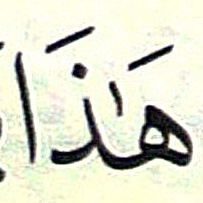 هَٰذَا